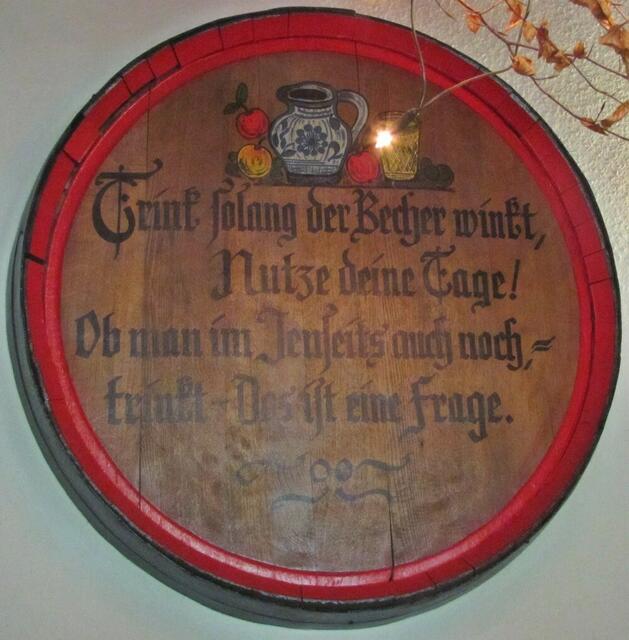 Trink solang der Becher winkt,
Nutze deine Tage!
Ob man im Jenseits auch noch,=
trinkt - Das ist eine Frage.